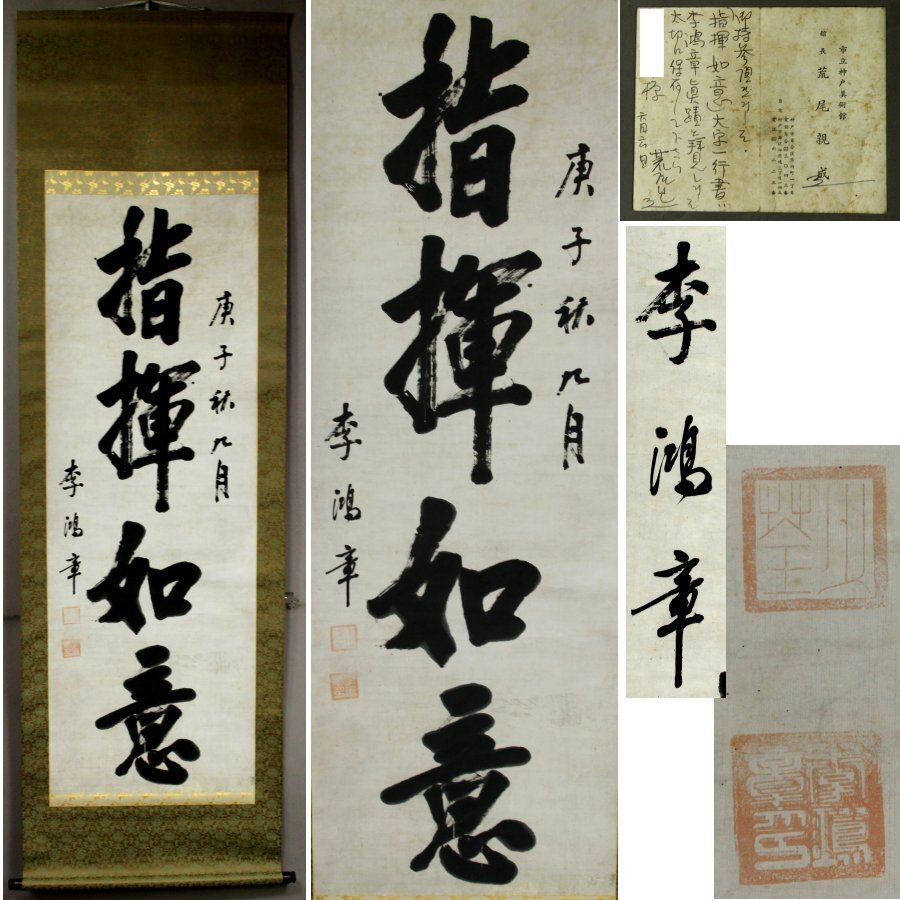 庚子秋九月
指揮如意
李鴻章
庚子秋九月
指揮如意
李鴻章
市立神戸美術館
館長 荒尾親成
指揮如意 大字一行書ハ
李鴻章真蹟と拝見しました
大切に保存して下さい
様 六月六日
李鴻章
李鴻章印